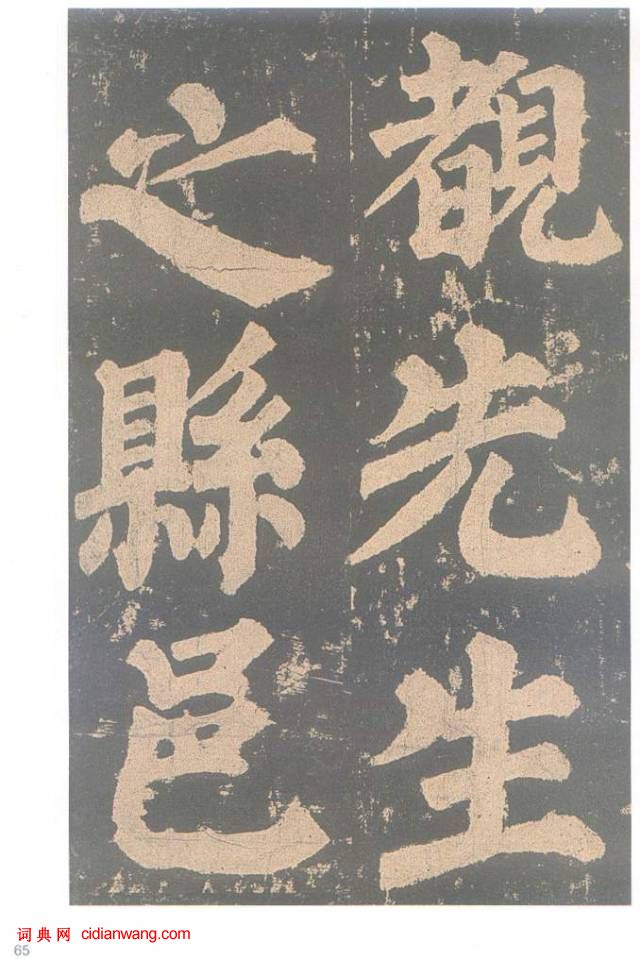 覩先生
之縣邑
词典网 cidianwang.com
65